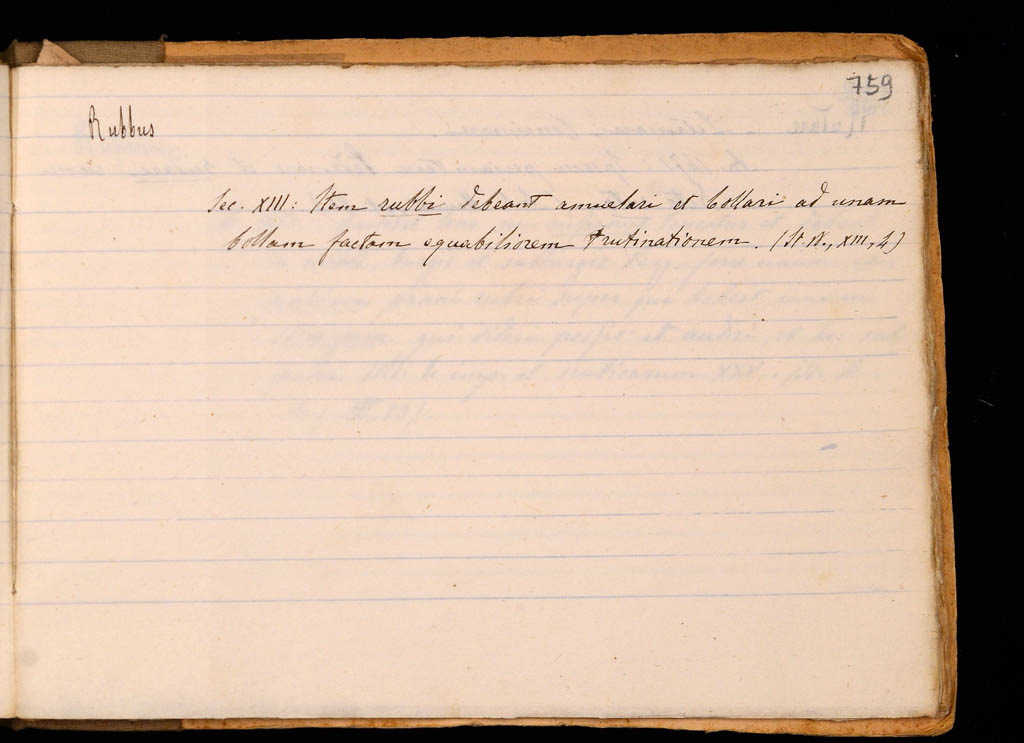 759
Rubbus
Sec. XIII: Item rubbi debeant amuelari et bollari ad unam
bollam factam equabiliorem trutinationem. (St. N., XIII, 4)